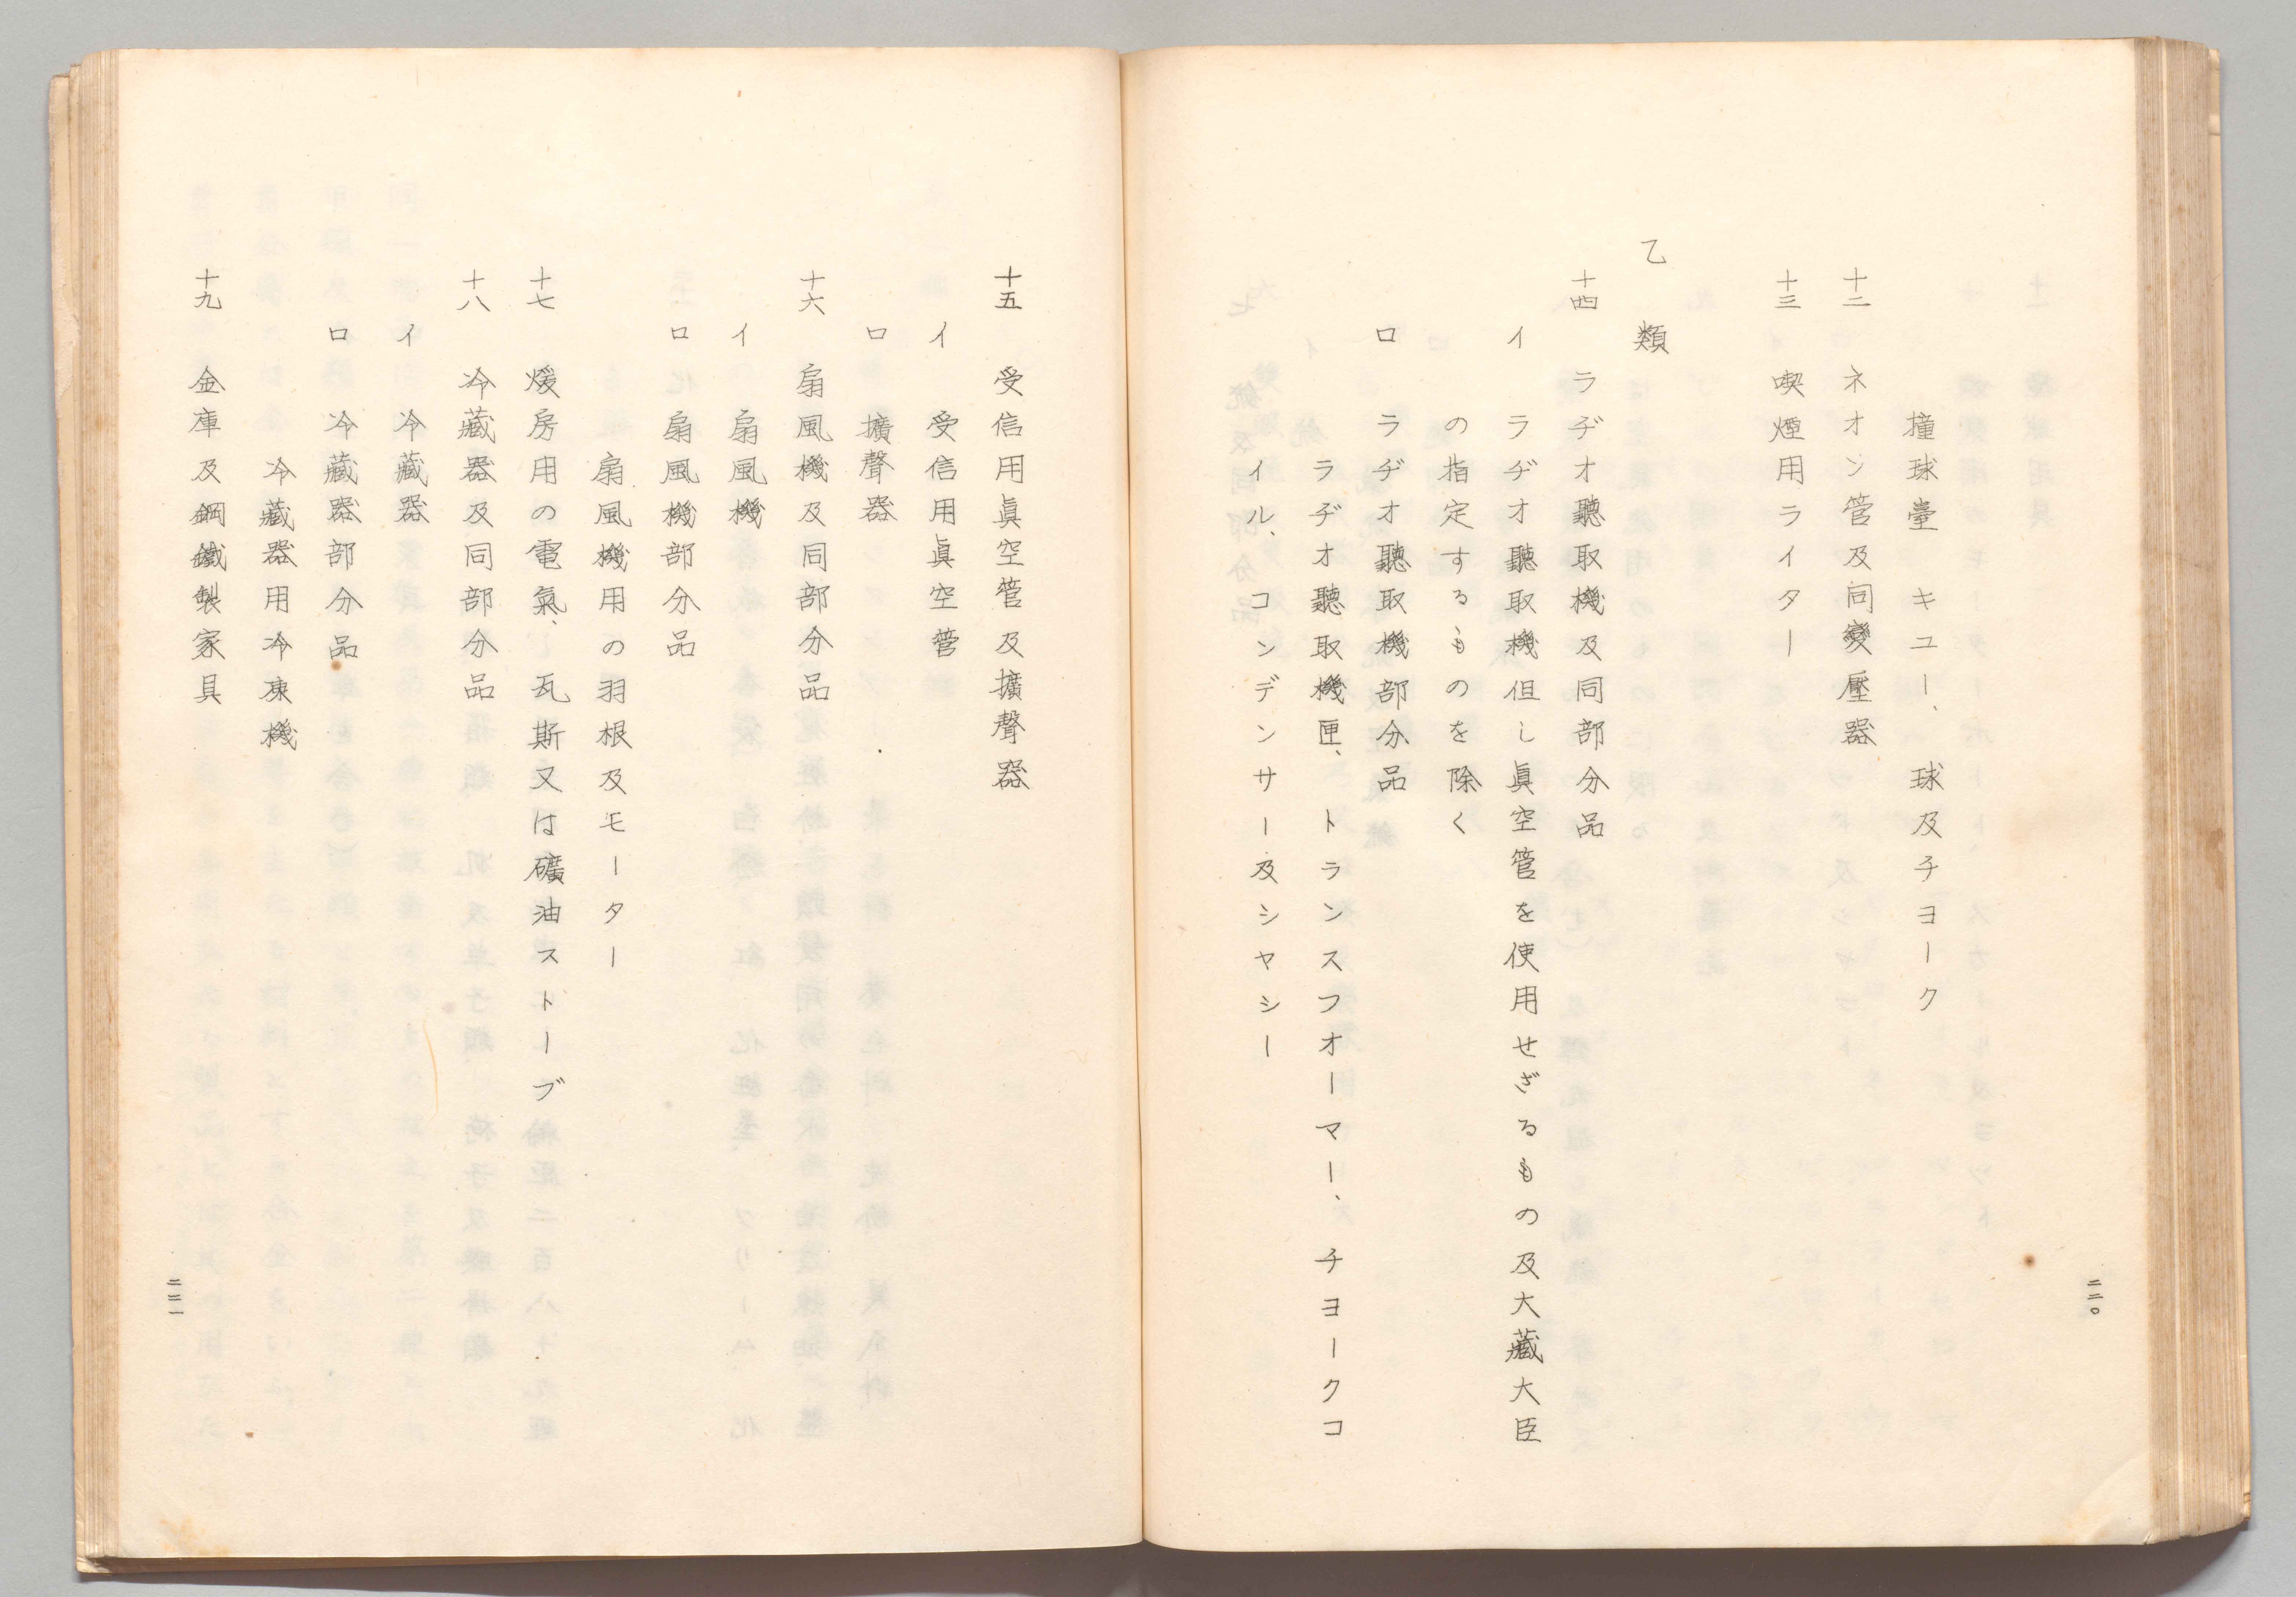 撞球臺　キユー、球及チヨーク
十二　ネオン管及同變壓器
十三　喫煙用ライター
乙類
十四　ラヂオ聽取機及同部分品
イ　ラヂオ聽取機但し眞空管を使用せざるもの及大藏大臣
の指定するものを除く
ロ　ラヂオ聽取機部分品
ラヂオ聽取機匣、トランスフオーマー、チヨークコ
イル、コンデンサー及シヤシー
二二〇
十五　受信用眞空管及擴聲器
イ　受信用眞空管
ロ　擴聲器
十六　扇風機及同部分品
イ　扇風機
ロ　扇風機部分品
扇風機用の羽根及モーター
十七　煖房用の電氣、瓦斯又は礦油ストーブ
十八　冷藏器及同部分品
イ　冷藏器
ロ　冷藏器部分品
冷藏器用冷凍機
十九　金庫及鋼鐵製家具
二二一